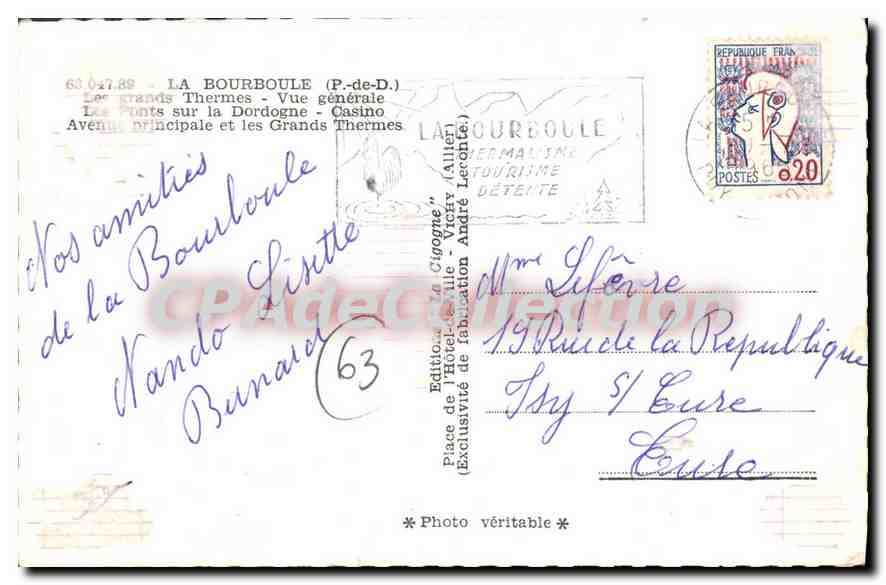 63.047.89 - LA BOURBOULE (P.-de-D.)
Les grands Thermes - Vue générale
Les Ponts sur la Dordogne - Casino
Avenue principale et les Grands Thermes
LA BOURBOULE
THERMALISME
TOURISME
DÉTENTE
REPUBLIQUE FRANÇAISE
POSTES 0.20
Nos amitiés
de la Bourboule
Nando Lisette
Bernard
63
Editions "La Cigogne"
Place de l'Hôtel-de-Ville - VICHY (Allier)
(Exclusivité de fabrication André Leconte)
Mme Lefêvre
19 Rue de la Republique
s/ Eure
Eure
* Photo véritable *
CPAdeCollection